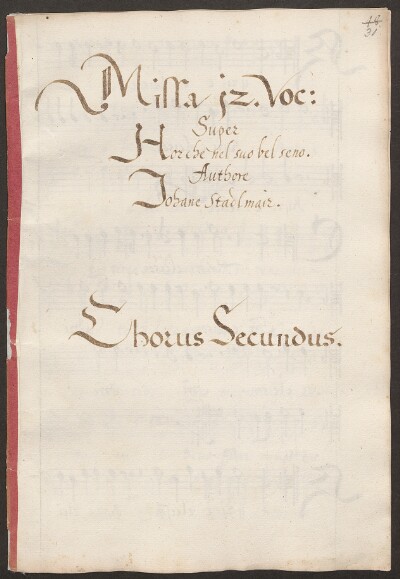 18
31
Missa jz. Voc:
Super
Hor che nel suo bel seno.
Authore
Johane Stadlmair.
Chorus Secundus.